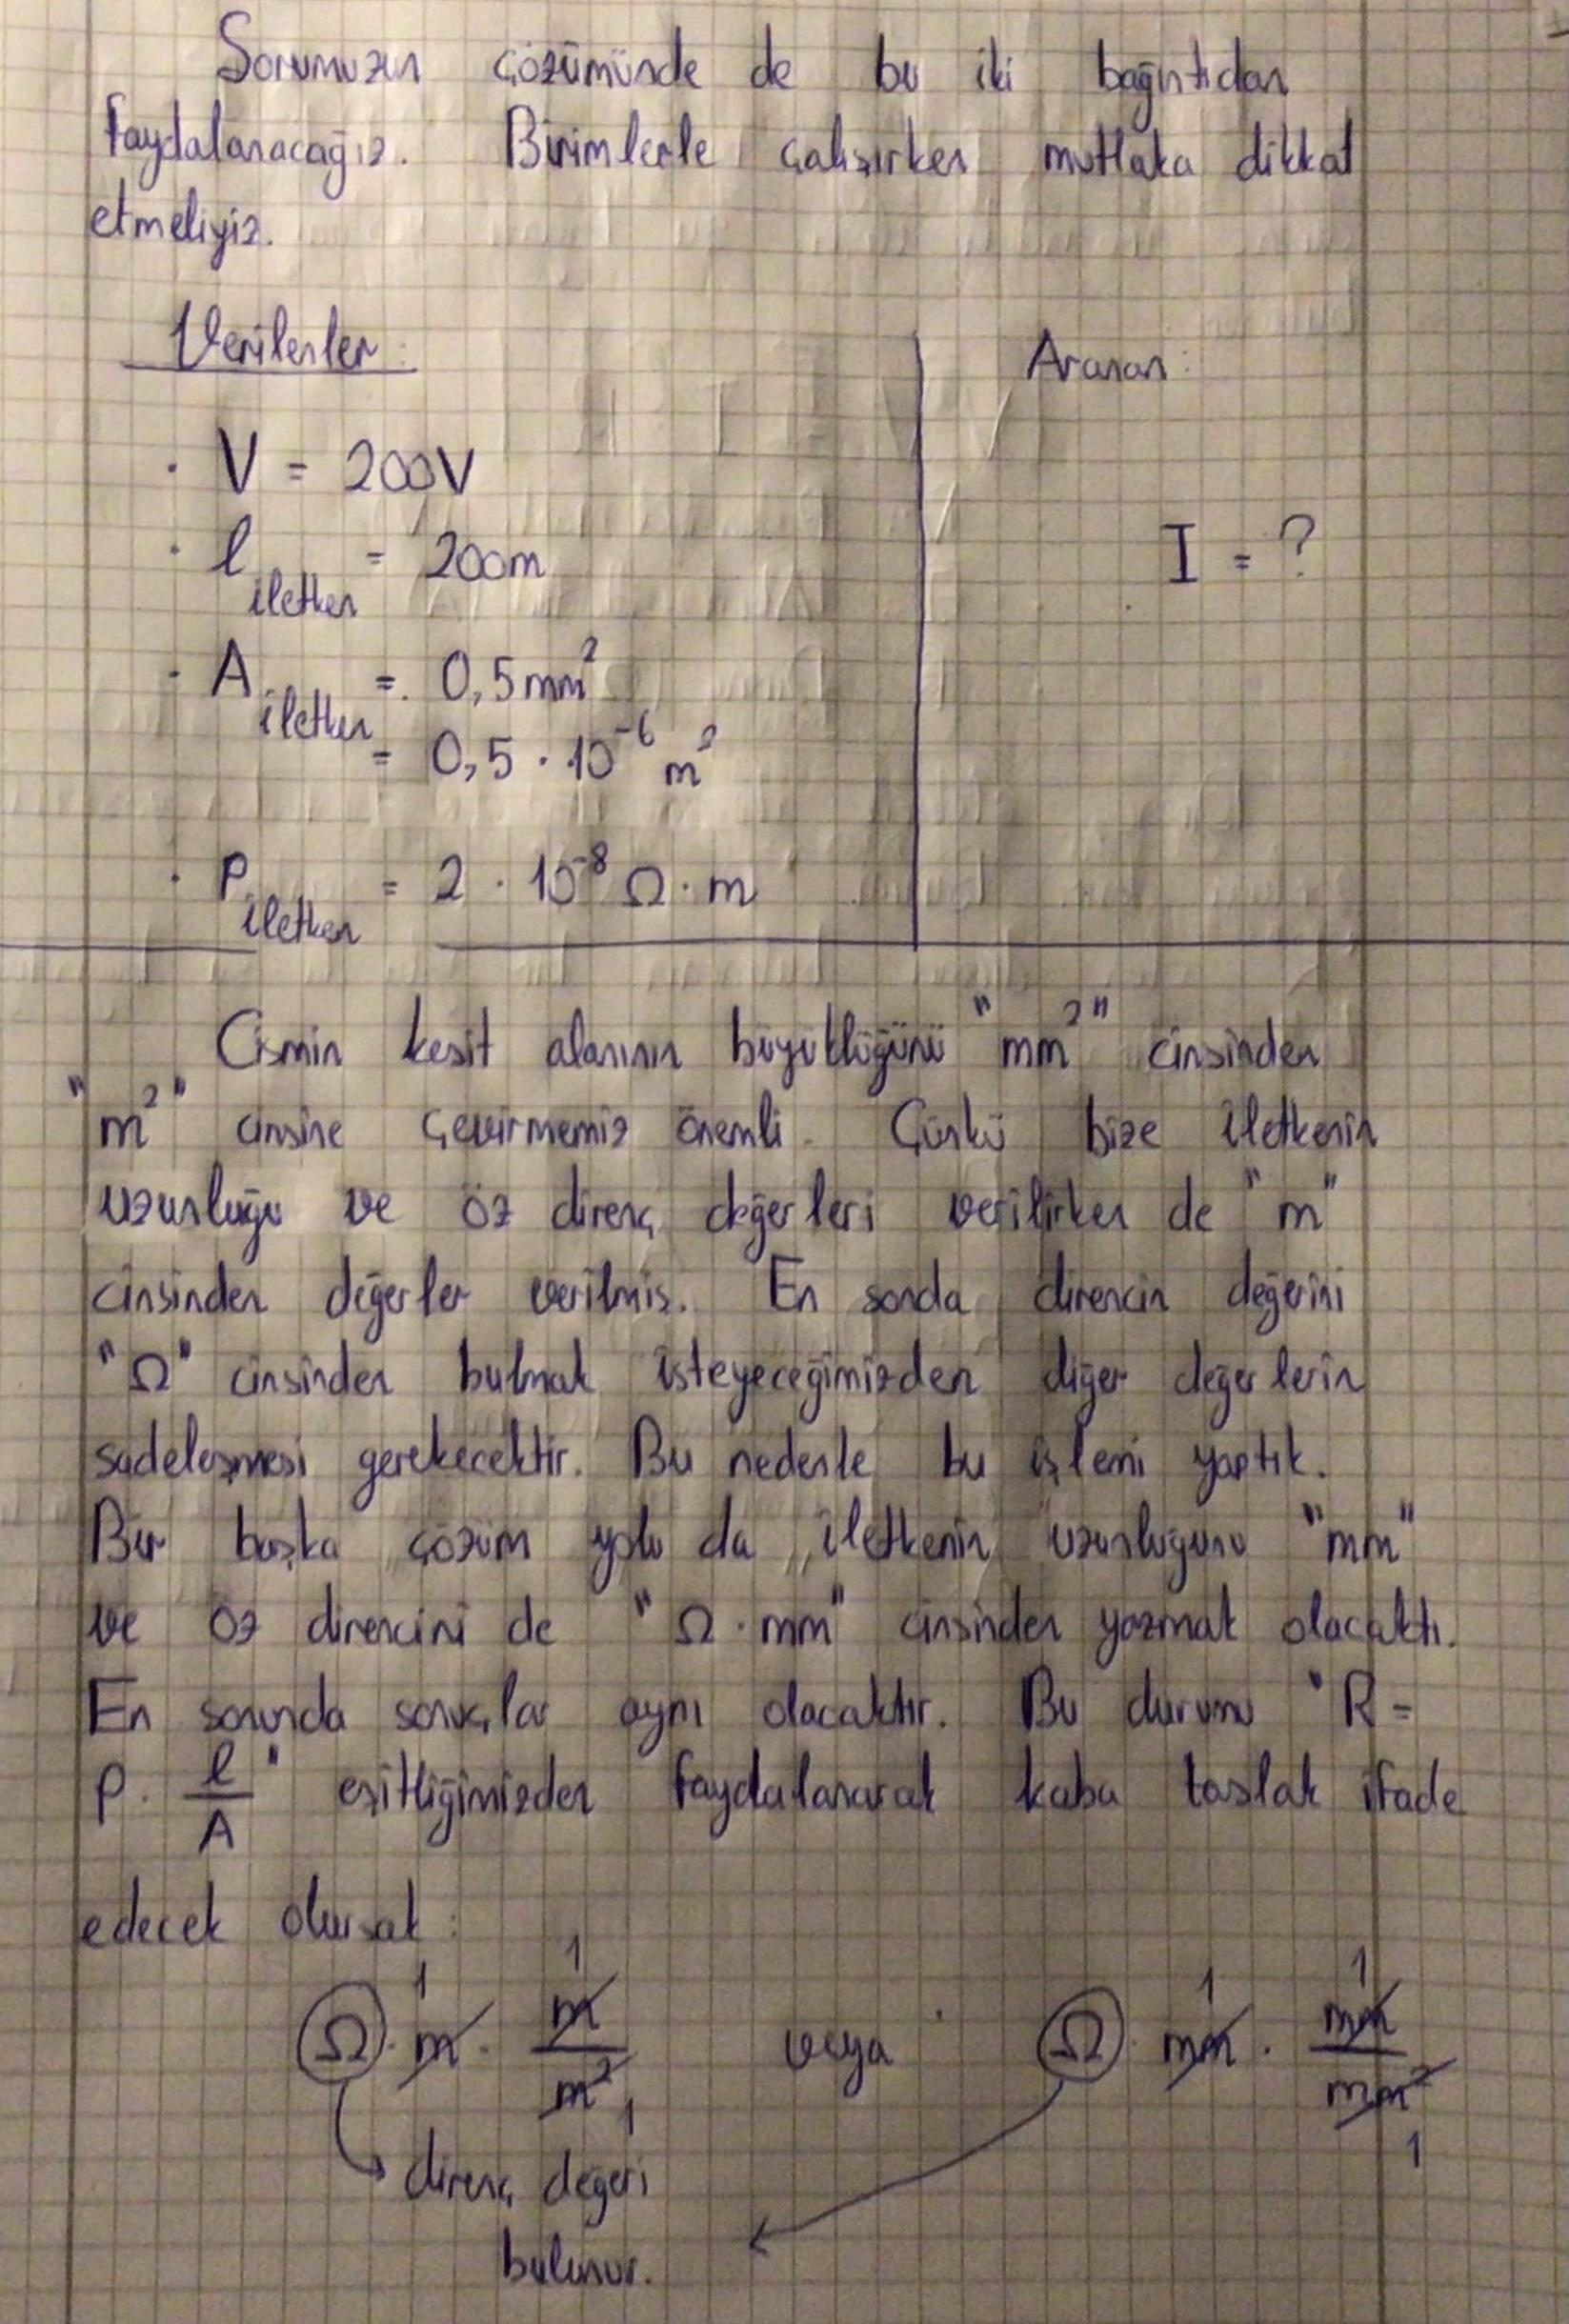 Sorumuzun çözümünde de bu iki bağıntıdan
faydalanacağız. Birimlerle çalışırken mutlaka dikkat
etmeliyiz.
Verilenler:
· V = 200V
· l iletken = 200m
· A iletken = 0,5 mm²
= 0,5 · 10⁻⁶ m²
· ρ iletken = 2 · 10⁻⁸ Ω · m
Aranan:
I = ?
Cismin kesit alanının büyüklüğünü "mm²" cinsinden
"m²" cinsine çevirmemiz önemli. Çünkü bize iletkenin
uzunluğu ve öz direnç değerleri verilirken de "m"
cinsinden değerler verilmiş. En sonda direncin değerini
"Ω" cinsinden bulmak isteyeceğimizden diğer değerlerin
sadeleşmesi gerekecektir. Bu nedenle bu işlemi yaptık.
Bir başka çözüm yolu da iletkenin uzunluğunu "mm"
ve öz direncini de "Ω · mm" cinsinden yazmak olacaktı.
En sonunda sonuçlar aynı olacaktır. Bu durumu "R =
ρ · l/A" eşitliğimizden faydalanarak kaba taslak ifade
edecek olursak:
Ω · m 1 · m 1 / m² 1 veya Ω · mm 1 · mm 1 / mm² 1
direnç değeri
bulunur.